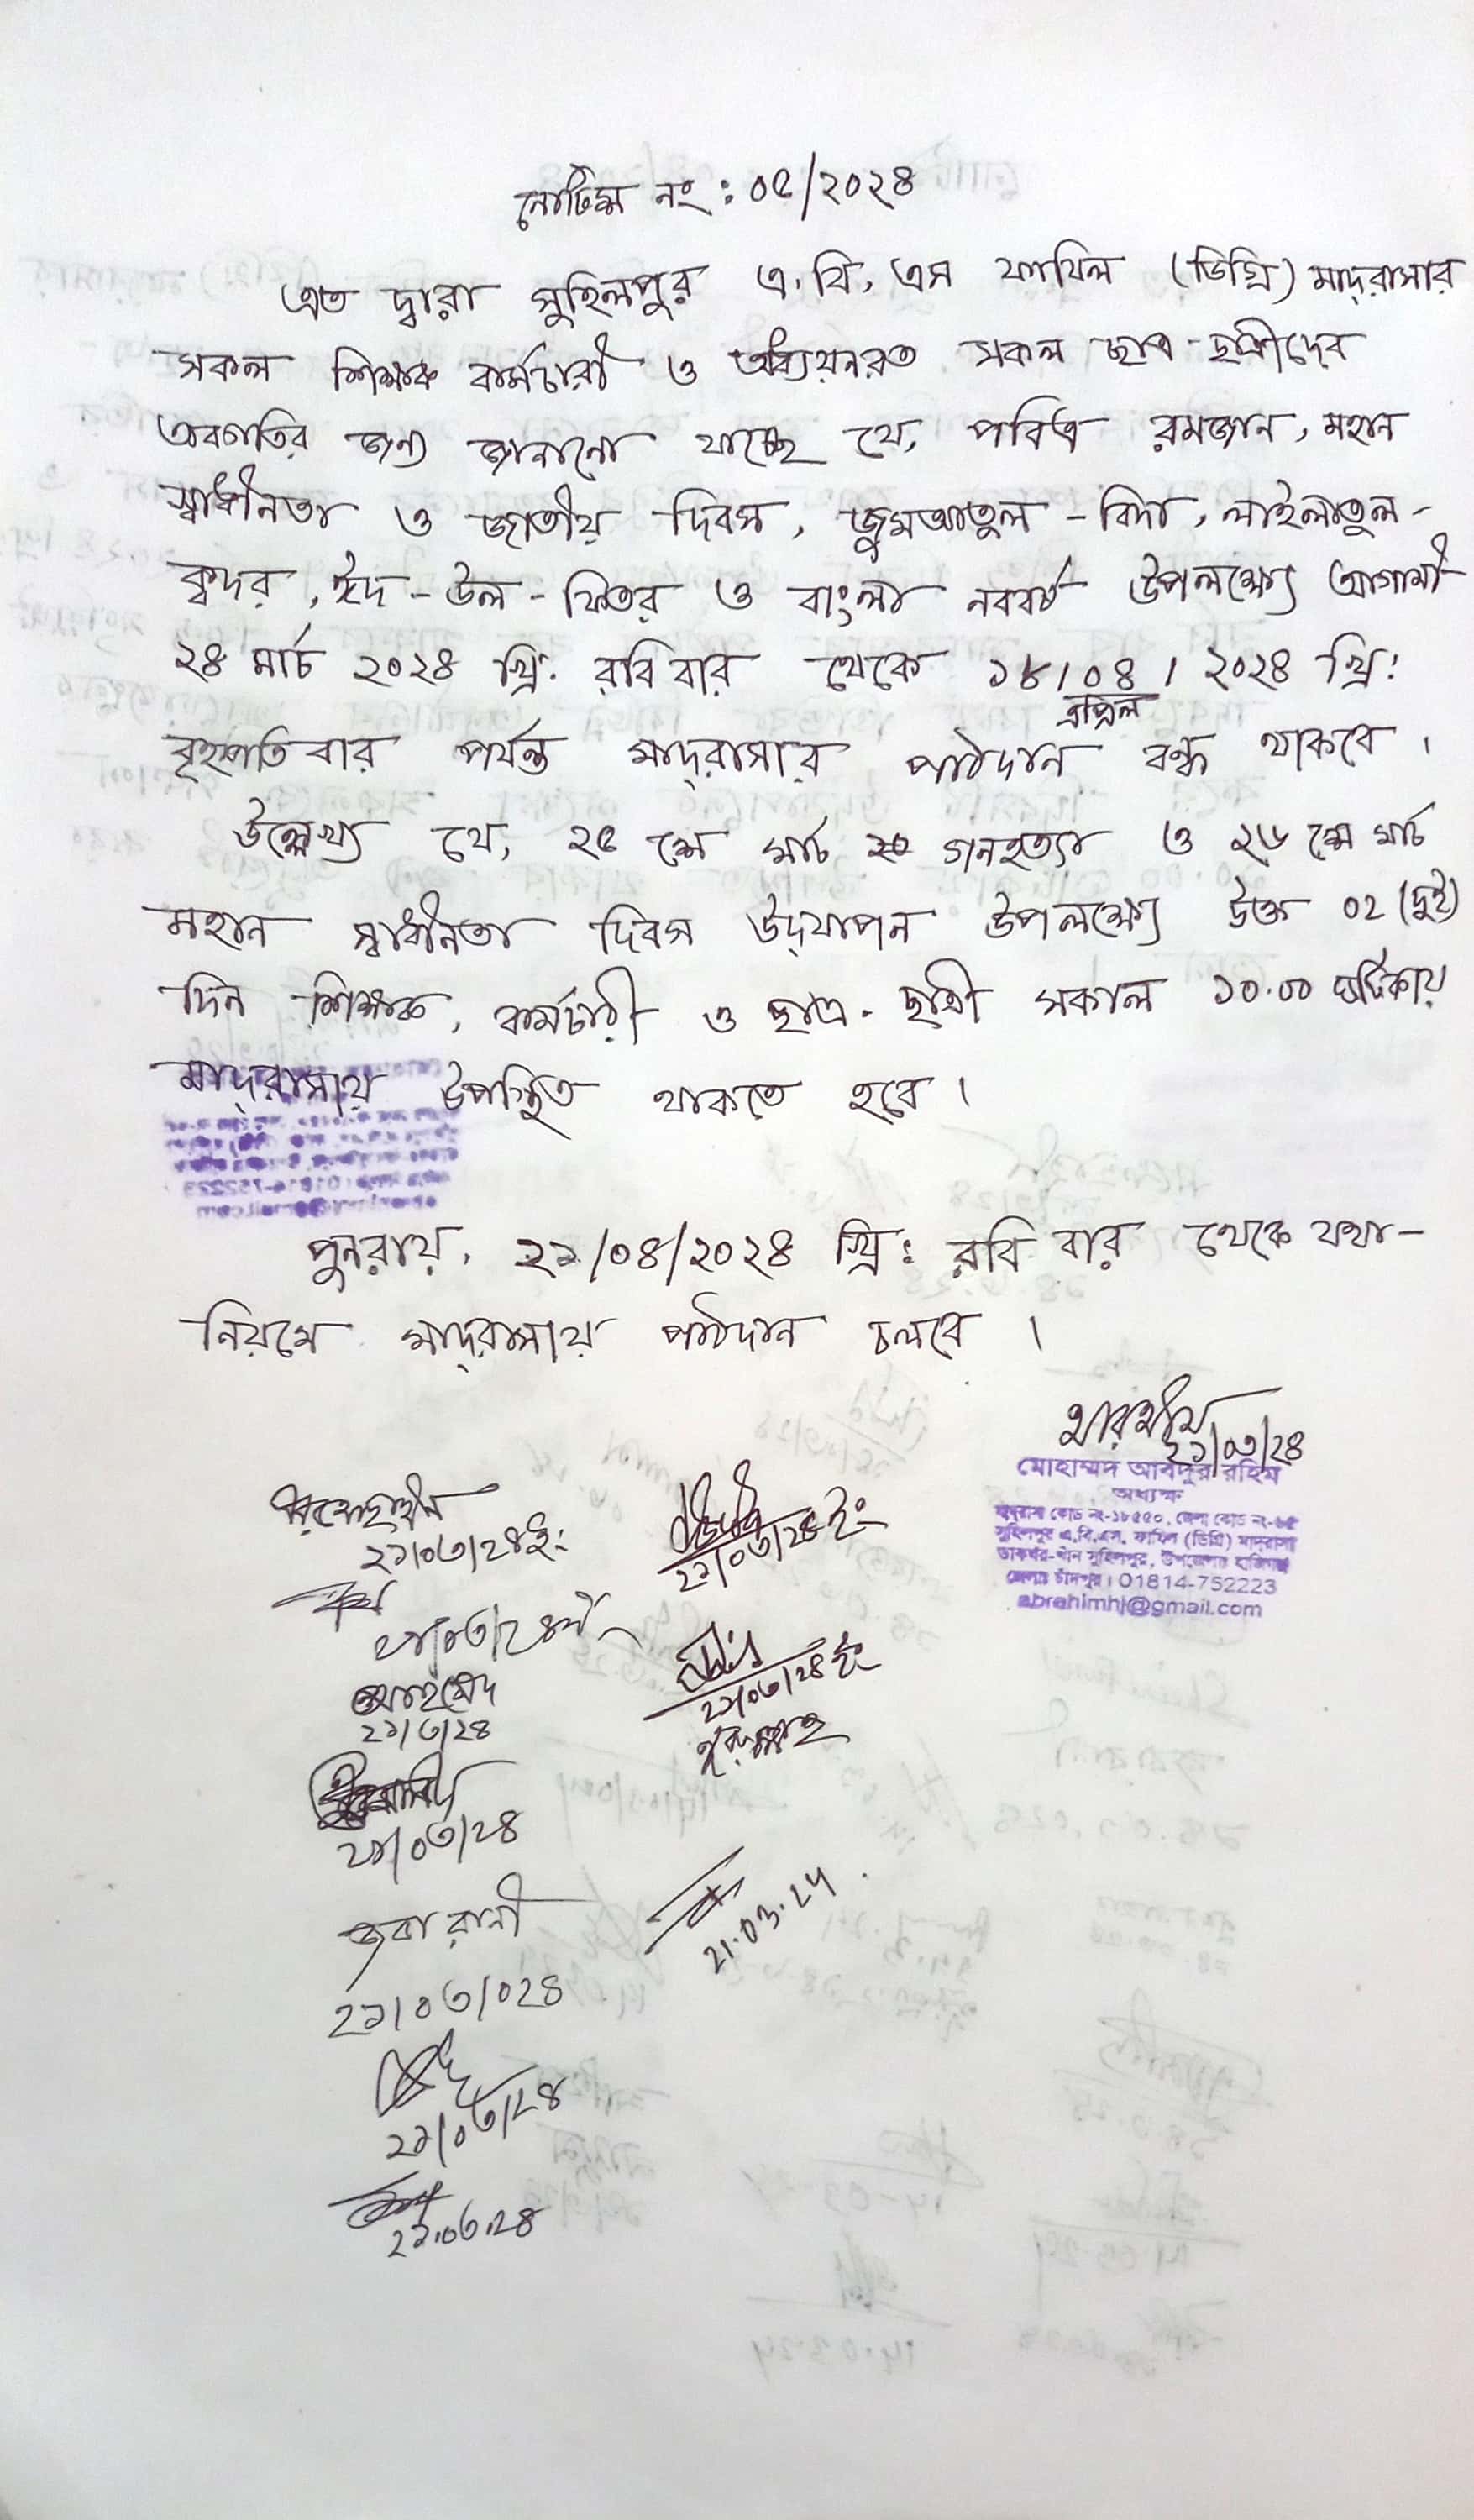 নোটিশ নং : ০৫/২০২৪
এত দ্বারা সুহিলপুর এ.বি.এস ফাযিল (ডিগ্রি) মাদ্‌রাসার
সকল শিক্ষক কর্মচারী ও অধ্যয়নরত সকল ছাত্র-ছাত্রীদের
অবগতির জন্য জানানো যাচ্ছে যে, পবিত্র রমজান, মহান
স্বাধীনতা ও জাতীয় দিবস, জুমআতুল - বিদা, লাইলাতুল -
ক্বদর, ঈদ - উল - ফিতর ও বাংলা নববর্ষ উপলক্ষ্যে আগামী
২৪ মার্চ ২০২৪ খ্রি. রবিবার থেকে ১৮/০৪/২০২৪ খ্রি:
এপ্রিল
বৃহস্পতিবার পর্যন্ত মাদ্‌রাসার পাঠদান বন্ধ থাকবে ।
উল্লেখ্য যে, ২৫ শে মার্চ গনহত্যা ও ২৬ শে মার্চ
মহান স্বাধীনতা দিবস উদ্‌যাপন উপলক্ষ্যে উক্ত ০২ (দুই)
দিন শিক্ষক, কর্মচারী ও ছাত্র-ছাত্রী সকাল ১০.০০ ঘটিকায়
মাদ্‌রাসায় উপস্থিত থাকতে হবে ।
পুনরায়, ২১/০৪/২০২৪ খ্রি: রবি বার থেকে যথা-
নিয়মে মাদ্‌রাসায় পাঠদান চলবে ।
২১/০৩/২৪
মোহাম্মদ আবদুর রহিম
অধ্যক্ষ
মাদ্‌রাসা কোড নং-১৮৫৫০, জেলা কোড নং-৬৫
সুহিলপুর এ.বি.এস. ফাযিল (ডিগ্রি) মাদ্‌রাসা
ডাকঘর-খাঁন সুহিলপুর, উপজেলাঃ হাজিগঞ্জ
জেলাঃ চাঁদপুর। 01814-752223
abrahimhj@gmail.com
২১/০৩/২৪ ইং
২১/০৩/২৪ ইং
২১/০৩/২৪
২১/০৩/২৪ ইং
আহমেদ
২১/৩/২৪
২১/০৩/২৪
জবা রানী
২১/০৩/০২৪
21.03.24
২১/০৩/২৪
২১.০৩.২৪